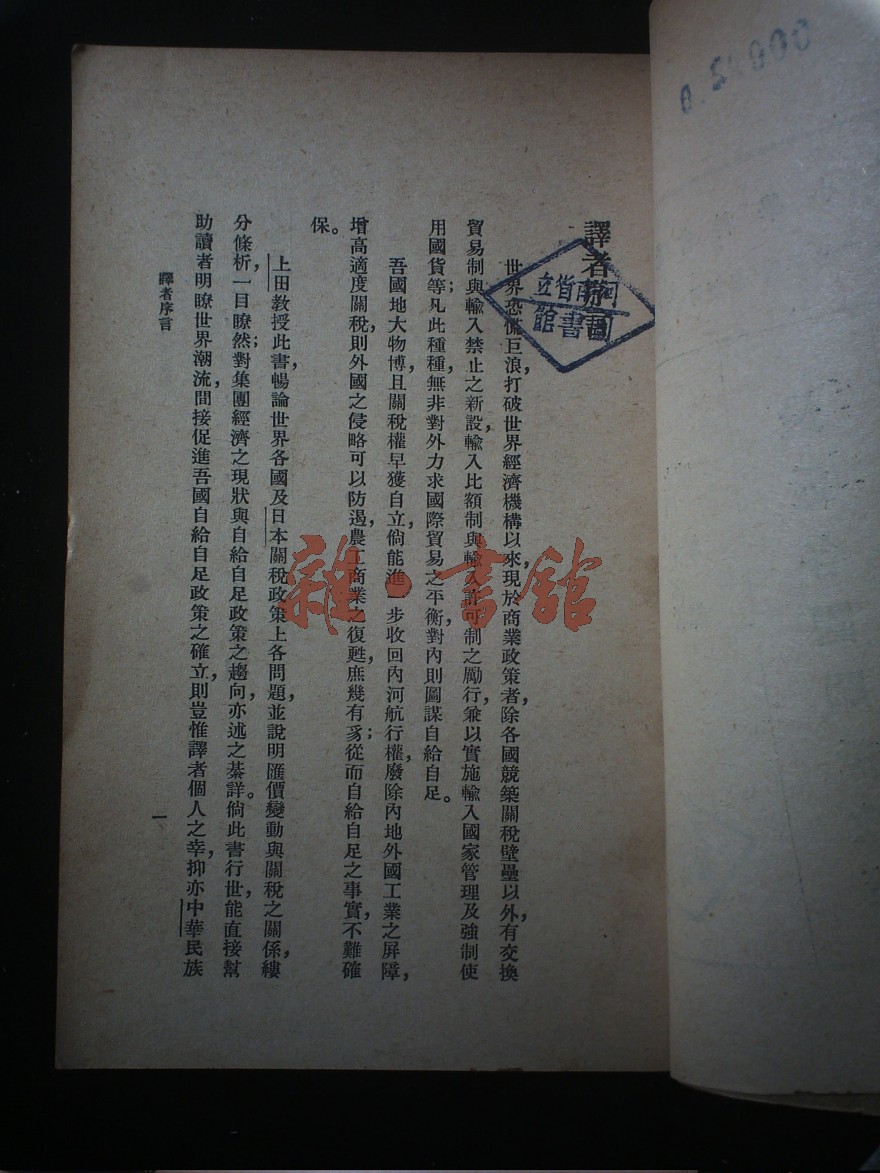 譯者序言
世界恐慌巨浪，打破世界經濟機構以來，現於商業政策者，除各國競築關稅壁壘以外，有交換
貿易制與輸入禁止之新設，輸入比額制與輸入許可制之勵行，兼以實施輸入國家管理及強制使
用國貨等；凡此種種，無非對外力求國際貿易之平衡，對內則圖謀自給自足。
吾國地大物博，且關稅權早獲自立，倘能進一步收回內河航行權，廢除內地外國工業之屏障，
增高適度關稅，則外國之侵略可以防遏，農工商業之復甦，庶幾有豸；從而自給自足之事實，不難確
保。
上田教授此書，暢論世界各國及日本關稅政策上各問題，並說明匯價變動與關稅之關係，縷
分條析，一目瞭然；對集團經濟之現狀與自給自足政策之趨向，亦述之綦詳。倘此書行世，能直接幫
助讀者明瞭世界潮流，間接促進吾國自給自足政策之確立，則豈惟譯者個人之幸，抑亦中華民族
譯者序言
一
河南省立
圖書館
雜·書館